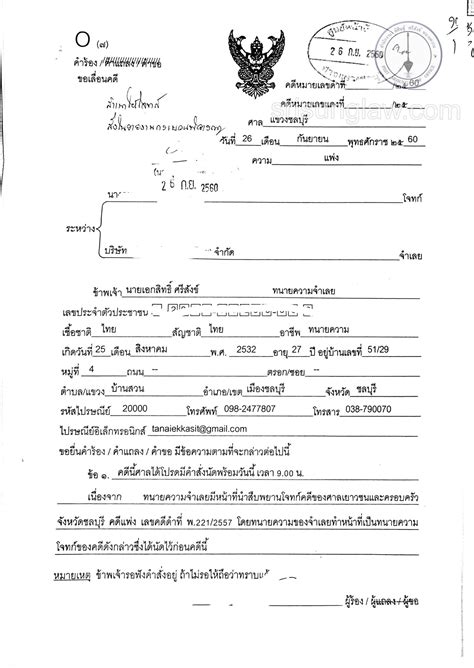 (๗)
คำร้อง / คำแถลง / คำขอ
ขอเลื่อนคดี
26 ก.ย. 2560
คดีหมายเลขดำที่ /๒๕60
คดีหมายเลขแดงที่ /๒๕
ศาล แขวงชลบุรี
วันที่ 26 เดือน กันยายน พุทธศักราช ๒๕ 60
ความ แพ่ง
26 ก.ย. 2560
โจทก์
ระหว่าง
บริษัท จำกัด จำเลย
ข้าพเจ้า นายเอกสิทธิ์ ศรีสังข์ ทนายความจำเลย
เลขประจำตัวประชาชน
เชื้อชาติ ไทย สัญชาติ ไทย อาชีพ ทนายความ
เกิดวันที่ 25 เดือน สิงหาคม พ.ศ. 2532 อายุ 27 ปี อยู่บ้านเลขที่ 51/29
หมู่ที่ 4 ถนน -- ตรอก/ซอย --
ตำบล/แขวง บ้านสวน อำเภอ/เขต เมืองชลบุรี จังหวัด ชลบุรี
รหัสไปรษณีย์ 20000 โทรศัพท์ 098-2477807 โทรสาร 038-790070
ไปรษณีย์อิเล็กทรอนิกส์ tanaiekkasit@gmail.com
ขอยื่นคำร้อง / คำแถลง / คำขอ มีข้อความตามที่จะกล่าวต่อไปนี้
ข้อ ๑. คดีนี้ศาลได้โปรดมีคำสั่งนัดพร้อมวันนี้ เวลา 9.00 น.
เนื่องจาก ทนายความจำเลยมีหน้าที่นำสืบพยานโจทก์คดีของศาลเยาวชนและครอบครัว
จังหวัดชลบุรี คดีแพ่ง เลขคดีดำที่ พ.221/2557 โดยทนายความของจำเลยทำหน้าที่เป็นทนายความ
โจทก์ของคดีดังกล่าวซึ่งได้นัดไว้ก่อนคดีนี้
หมายเหตุ ข้าพเจ้ารอฟังคำสั่งอยู่ ถ้าไม่รอให้ถือว่าทราบแล้ว
ผู้ร้อง / ผู้แถลง / ผู้ขอ